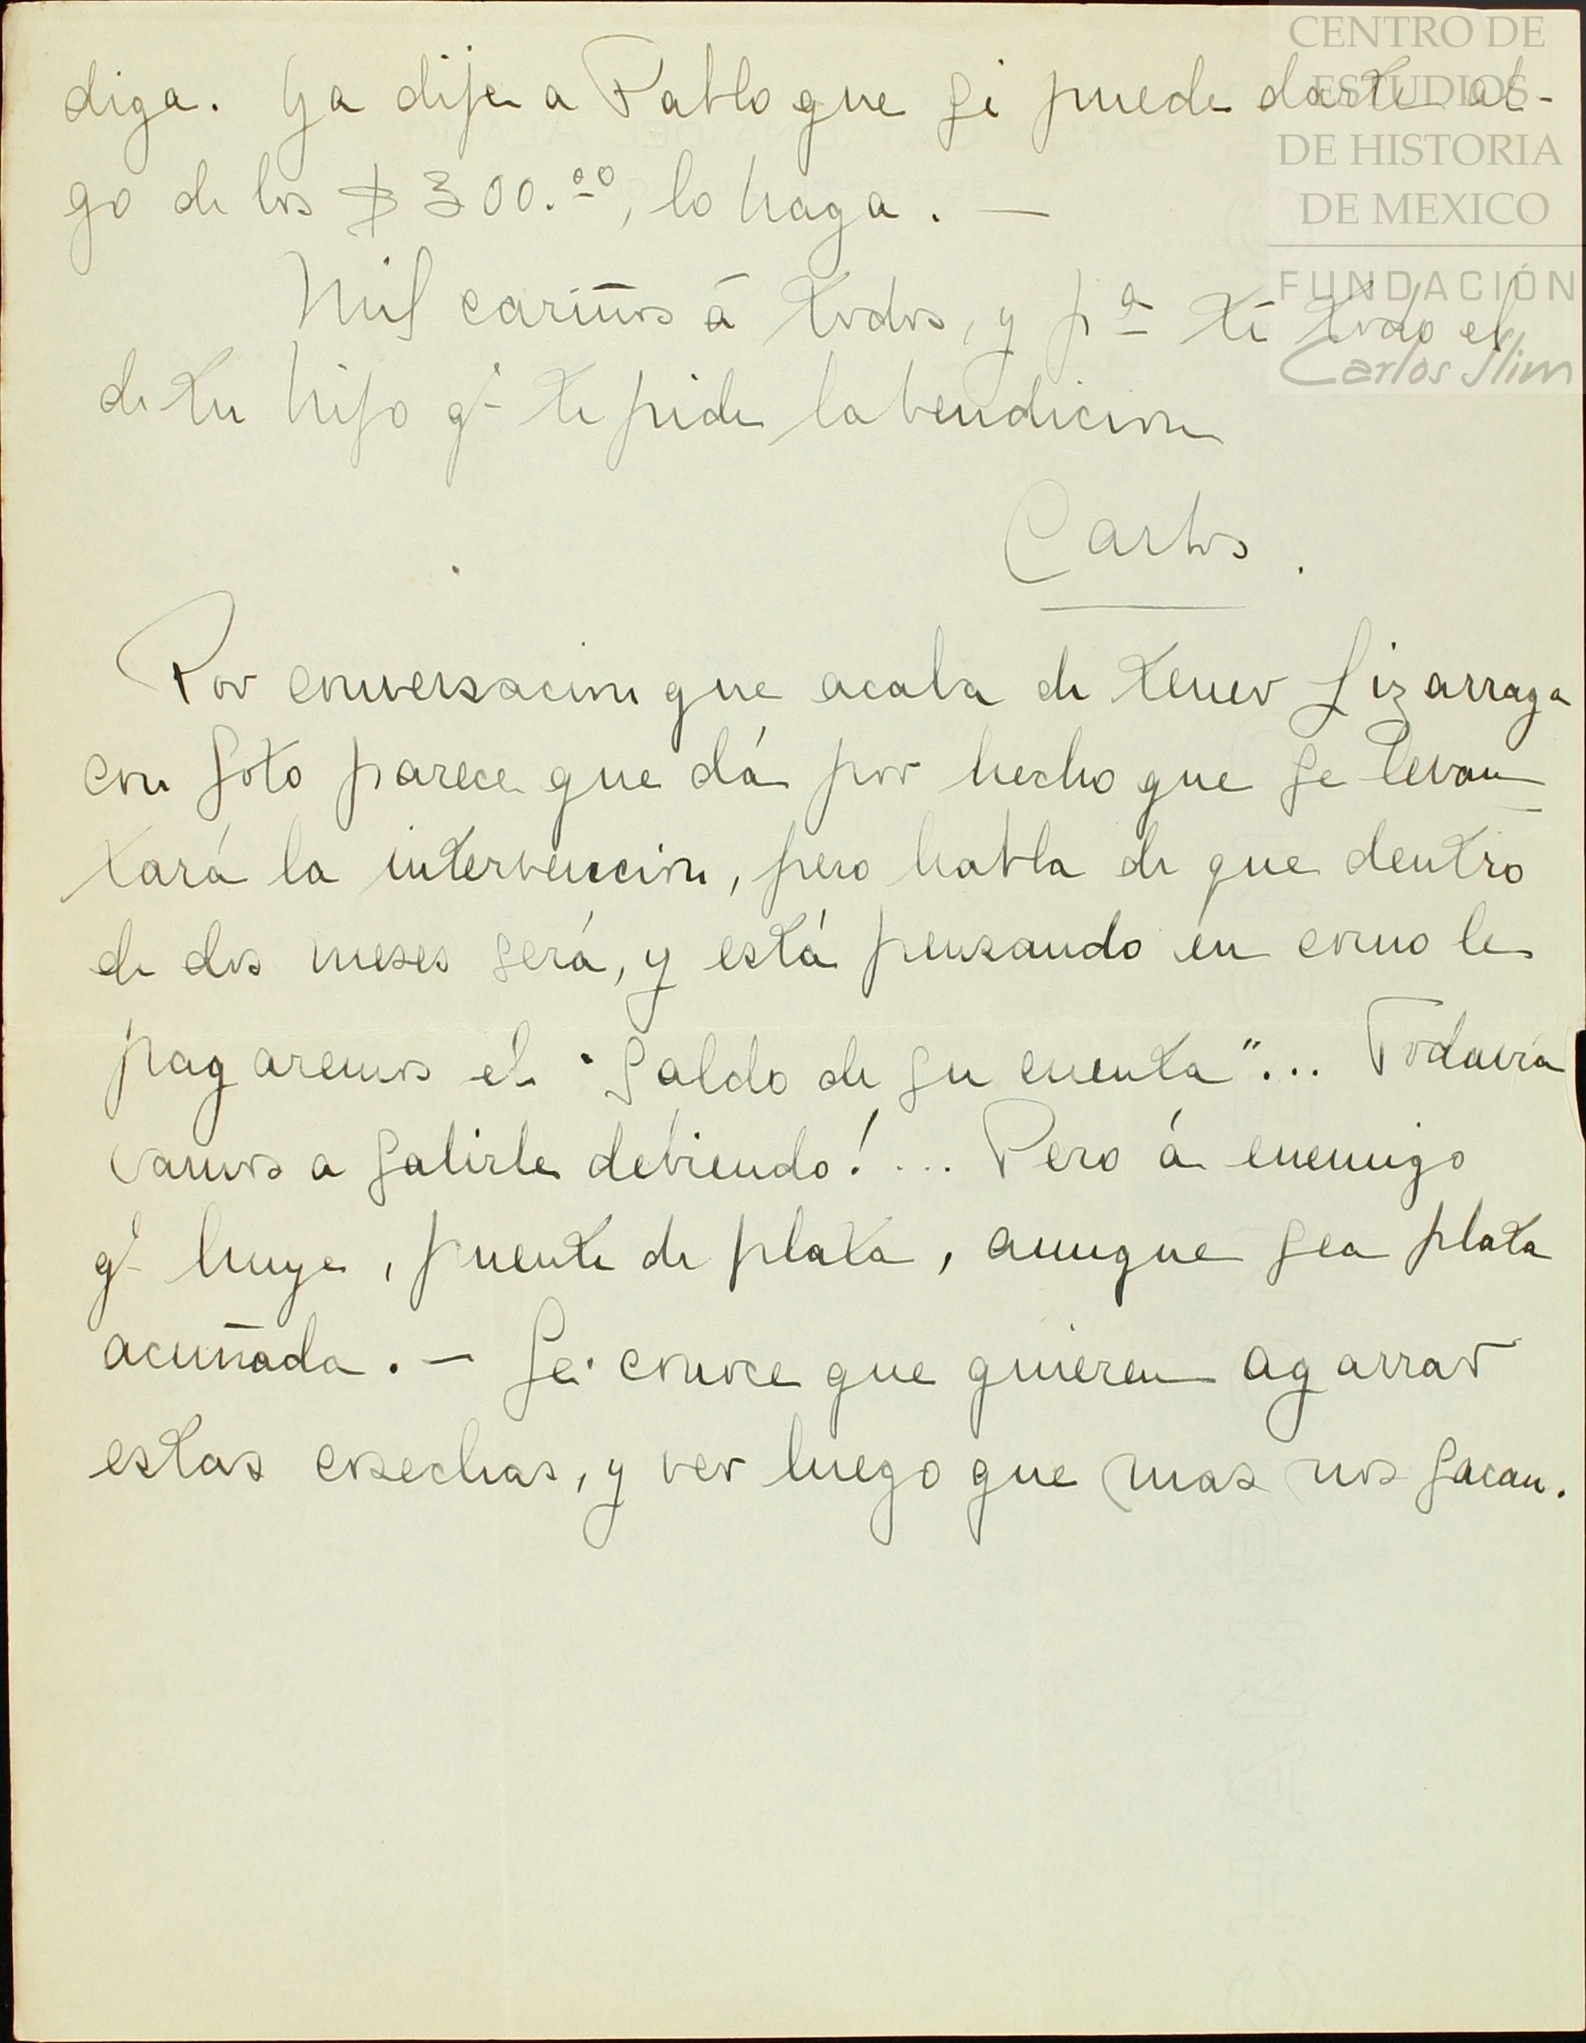 diga. Ya dije a Pablo que si puede darte al-
go de los $300.00, lo haga. —
Mil cariños á todos, y pª tí todo el
de tu hijo qe te pide la bendicion
Carlos.
Por conversacion que acaba de tener Lizarraga
con Soto parece que dá por hecho que se levan
tará la intervencion, pero habla de que dentro
de dos meses será, y está pensando en como le
pagaremos el "saldo de su cuenta"... Todavía
vamos a salirle debiendo!... Pero á enemigo
qe huye, puente de plata, aunque sea plata
acuñada. — Se conoce que quieren agarrar
estas cosechas, y ver luego que mas nos sacan.
CENTRO DE
ESTUDIOS
DE HISTORIA
DE MEXICO
FUNDACIÓN
Carlos Slim